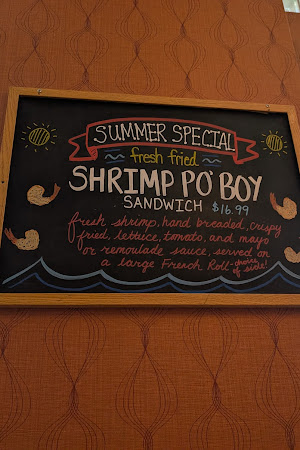 SUMMER SPECIAL
fresh fried
SHRIMP PO' BOY
SANDWICH $16.99
fresh shrimp, hand breaded, crispy
fried, lettuce, tomato, and mayo
or remoulade sauce, served on
a large French Roll - choice
of side!